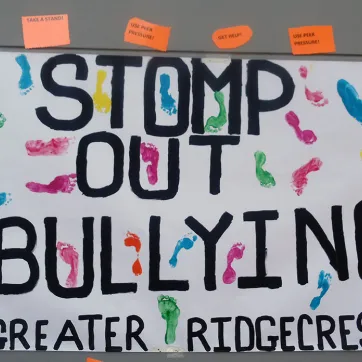 TAKE A STAND!
USE PEER
PRESSURE!
GET HELP!
USE PEER
PRESSURE!
STOMP
OUT
BULLYIN
GREATER RIDGECRES